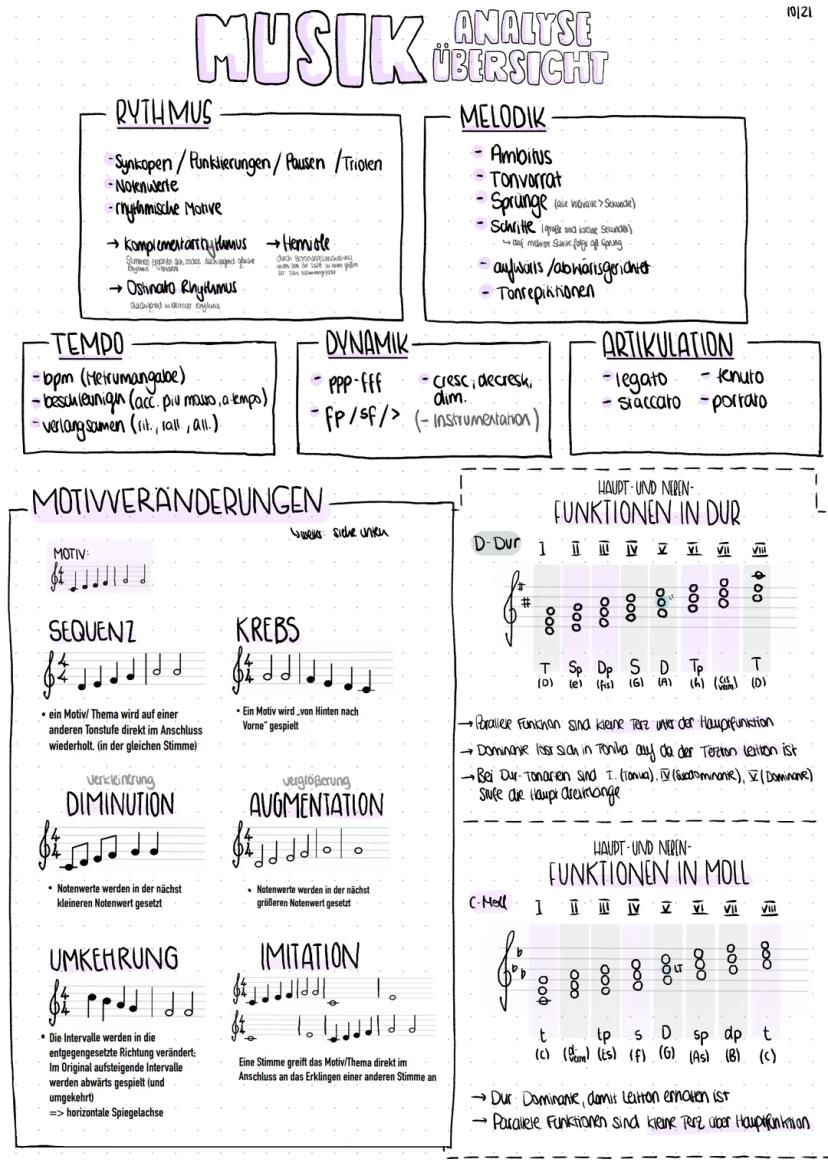 10/21
MUSIK ANALYSE
ÜBERSICHT
RYTHMUS
- Synkopen / Punktierungen / Pausen / Triolen
- Notenwerte
- rhythmische Motive
→ Komplementärrhythmus → Hemiole
→ Ostinato Rhythmus
MELODIK
- Ambitus
- Tonvorrat
- Sprünge (alle Intervalle > Sekunde)
- Schritte (große und kleine Sekunden)
↳ auf mehrere Schritte folgt oft Sprung
- aufwärts / abwärtsgerichtet
- Tonrepitionen
TEMPO
- bpm (Metrumangabe)
- beschleunigen (acc. più mosso, a tempo)
- verlangsamen (rit., rall., all.)
DYNAMIK
- ppp - fff
- fp / sf / >
- cresc, decresk,
dim.
(- Instrumentation)
ARTIKULATION
- legato - tenuto
- staccato - portato
MOTIVVERÄNDERUNGEN
siehe unten
MOTIV:
4
4
SEQUENZ
4
4
• ein Motiv/ Thema wird auf einer
anderen Tonstufe direkt im Anschluss
wiederholt. (in der gleichen Stimme)
KREBS
4
4
• Ein Motiv wird „von Hinten nach
Vorne" gespielt
verkleinerung
DIMINUTION
4
4
• Notenwerte werden in der nächst
kleineren Notenwert gesetzt
vergrößerung
AUGMENTATION
4
4
• Notenwerte werden in der nächst
größeren Notenwert gesetzt
UMKEHRUNG
4
4
• Die Intervalle werden in die
entgegengesetzte Richtung verändert:
Im Original aufsteigende Intervalle
werden abwärts gespielt (und
umgekehrt)
=> horizontale Spiegelachse
IMITATION
4
4
4
4
Eine Stimme greift das Motiv/Thema direkt im
Anschluss an das Erklingen einer anderen Stimme an
HAUPT- UND NEBEN-
FUNKTIONEN IN DUR
D-Dur I II III IV V VI VII VIII
T Sp Dp S D Tp T
(D) (e) (fis) (G) (A) (h) (cis verm) (D)
→ Parallele Funktion sind kleine Terz unter der Hauptfunktion
→ Dominante löst sich in Tonika auf da der Terzton Leitton ist
→ Bei Dur-Tonarten sind I. (Tonika), IV (Subdominante), V (Dominante)
Stufe die Hauptdreiklänge
HAUPT- UND NEBEN-
FUNKTIONEN IN MOLL
C-Moll I II III IV V VI VII VIII
LT
t tp s D sp dp t
(c) (d verm) (Es) (f) (G) (As) (B) (c)
→ Dur Dominante, damit Leitton erhalten ist
→ Parallele Funktionen sind kleine Terz über Hauptfunktion